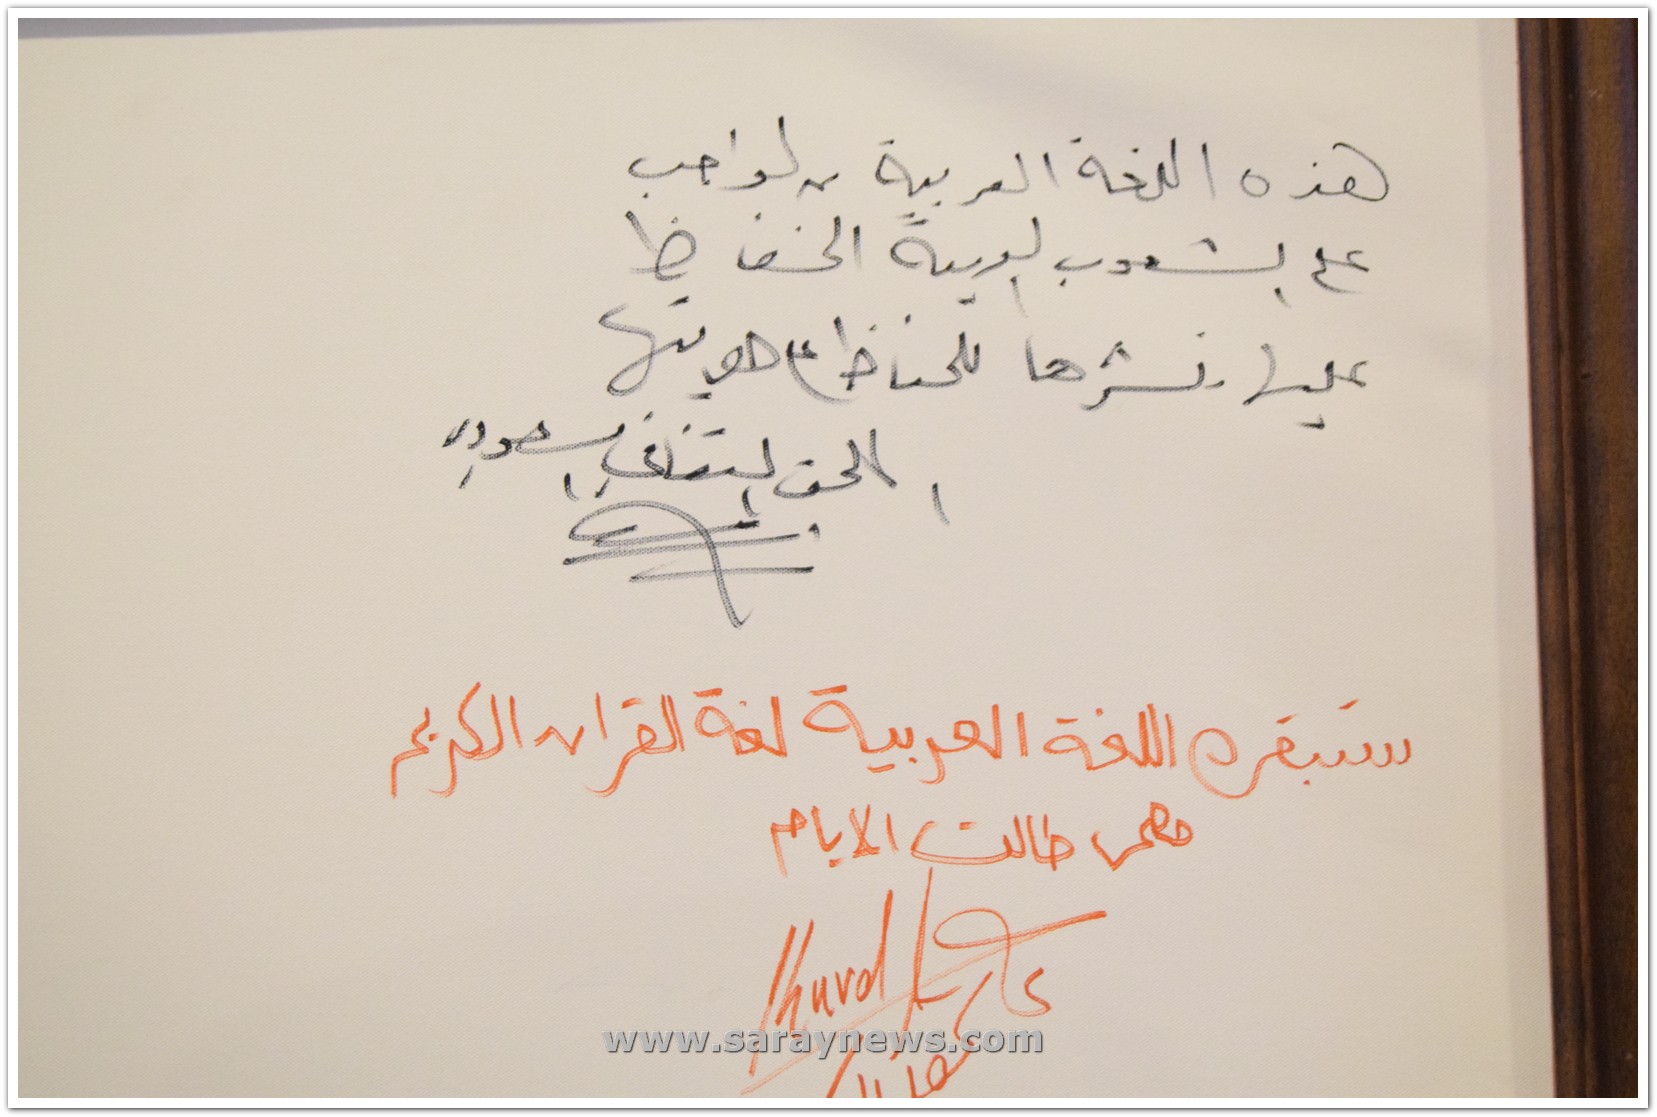 هذه اللغة العربية من لواجب
على الشعوب العربية الحفاظ
عليها ونشرها للحفاظ على هويتها
الملحق الثقافي السعودي
ستبقى اللغة العربية لغة القران الكريم
مهمى طالت الايام
www.saraynews.com